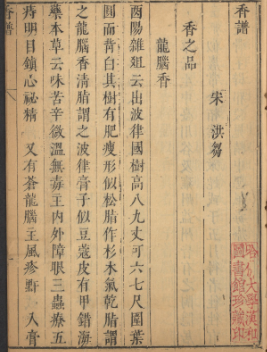 香譜
宋 洪芻
香之品
龍腦香
酉陽雜俎云出波律國樹高八九丈可六七尺圍葉
圓而背白其樹有肥瘦形似松脂作杉木氣乾脂謂
之龍腦香清脂謂之波律膏子似豆蔻皮有甲錯海
藥本草云味苦辛微溫無毒主內外障眼三蟲療五
痔明目鎮心祕精 又有蒼龍腦主風疹䵟入膏
香譜